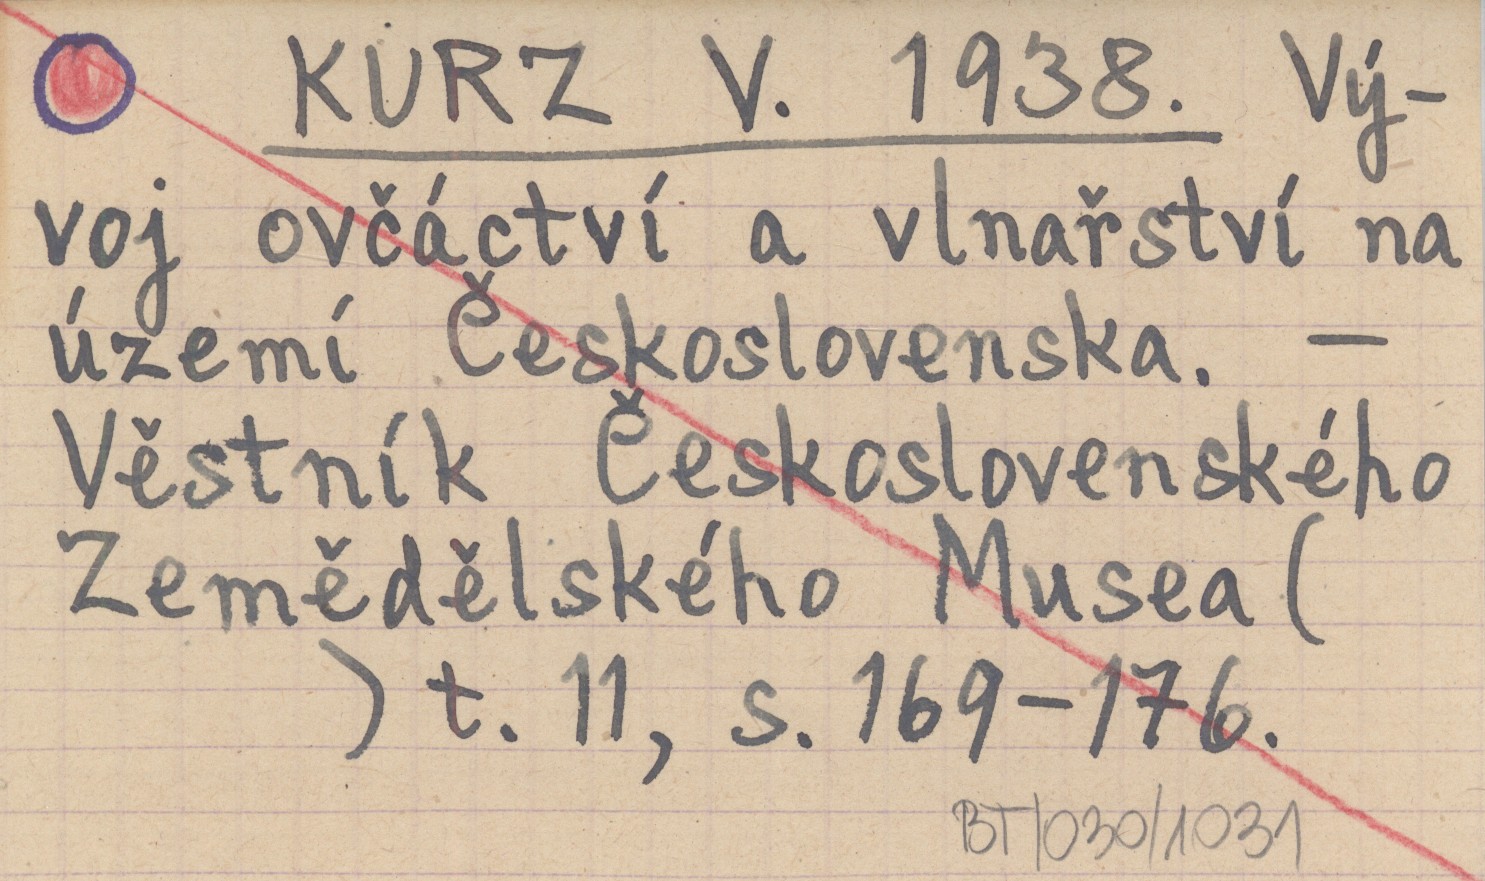 KURZ V. 1938. Vý-
voj ovčáctví a vlnařství na
území Československa. —
Věstník Československého
Zemědělského Musea (
) t. 11, s. 169-176.
BT/030/1031